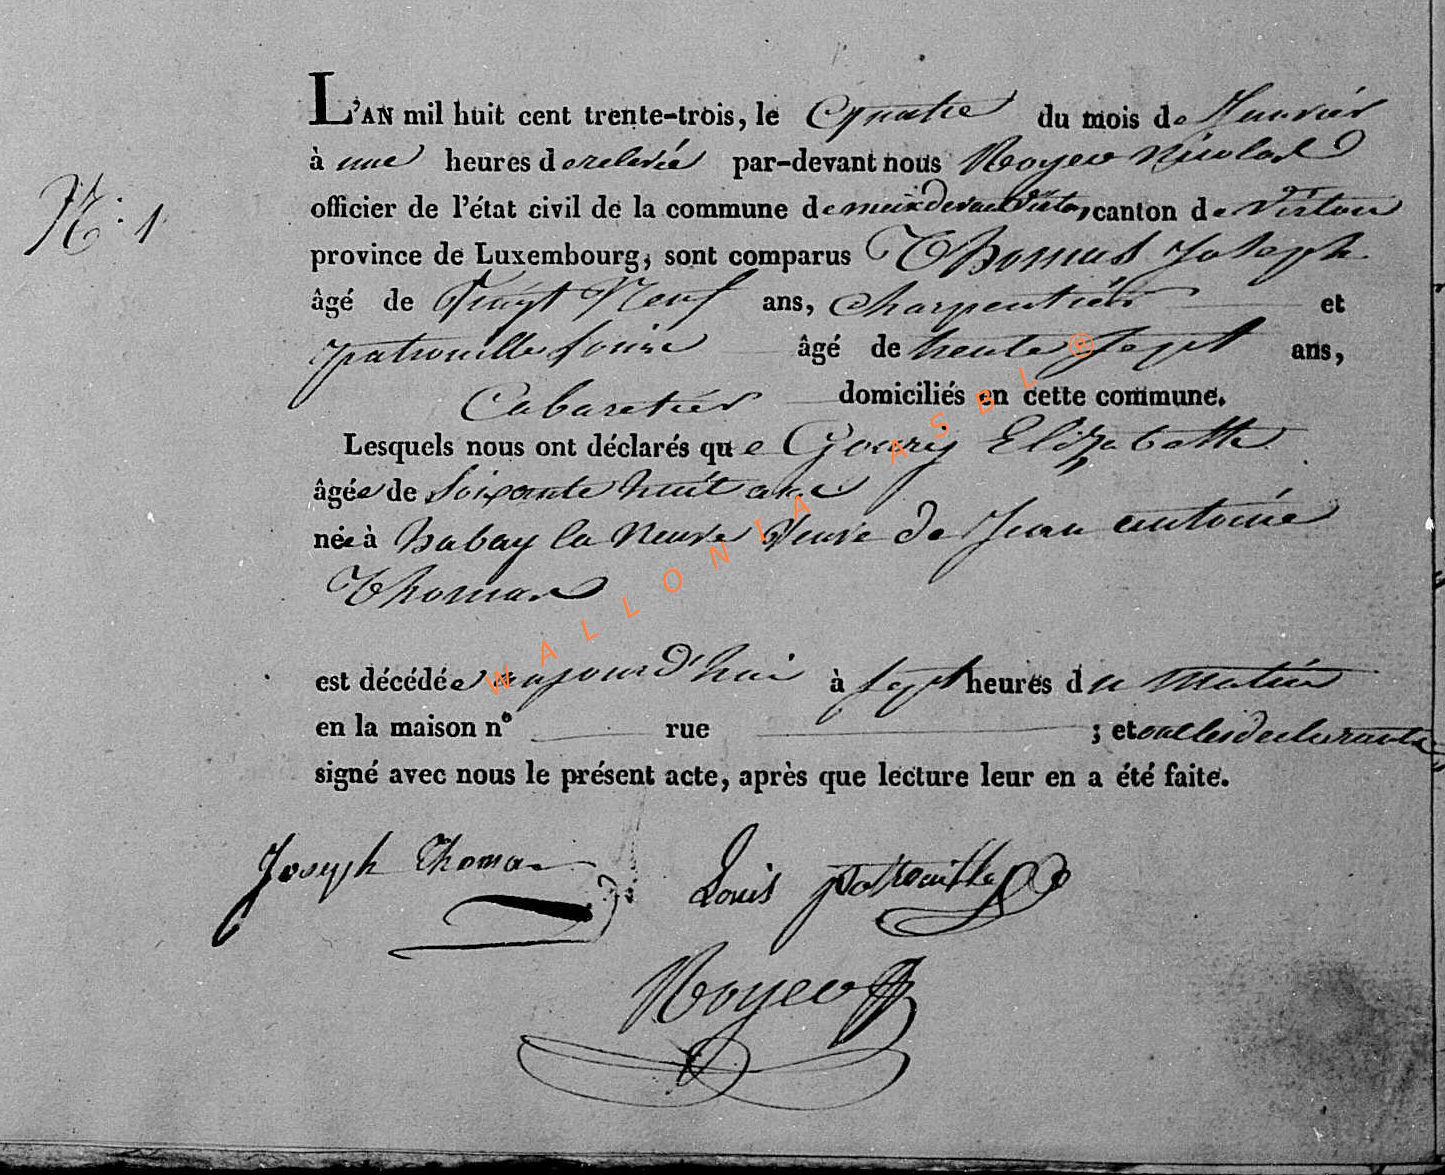 L'AN mil huit cent trente-trois, le Quatre du mois de Janvier
à une heures de relevée par-devant nous Noyew Nicolas
N.° 1
officier de l'état civil de la commune de meix devant virton, canton de Virton
province de Luxembourg, sont comparus Thomas Joseph
âgé de Vingt Neuf ans, Charpentier et
patrouille Louis âgé de trente sept ans,
Cabaretier domiciliés en cette commune.
Lesquels nous ont déclarés que Goury Elizabethe
âgée de Soixante huit ans
née à habay la Neuve Veuve de Jean antoine
Thomas
est décédée aujourd'hui à sept heures du matin
en la maison n° rue ; et les declarants
signé avec nous le présent acte, après que lecture leur en a été faite.
Joseph Thomas Louis patrouille
Noyew
WALLONIA ASBL ®